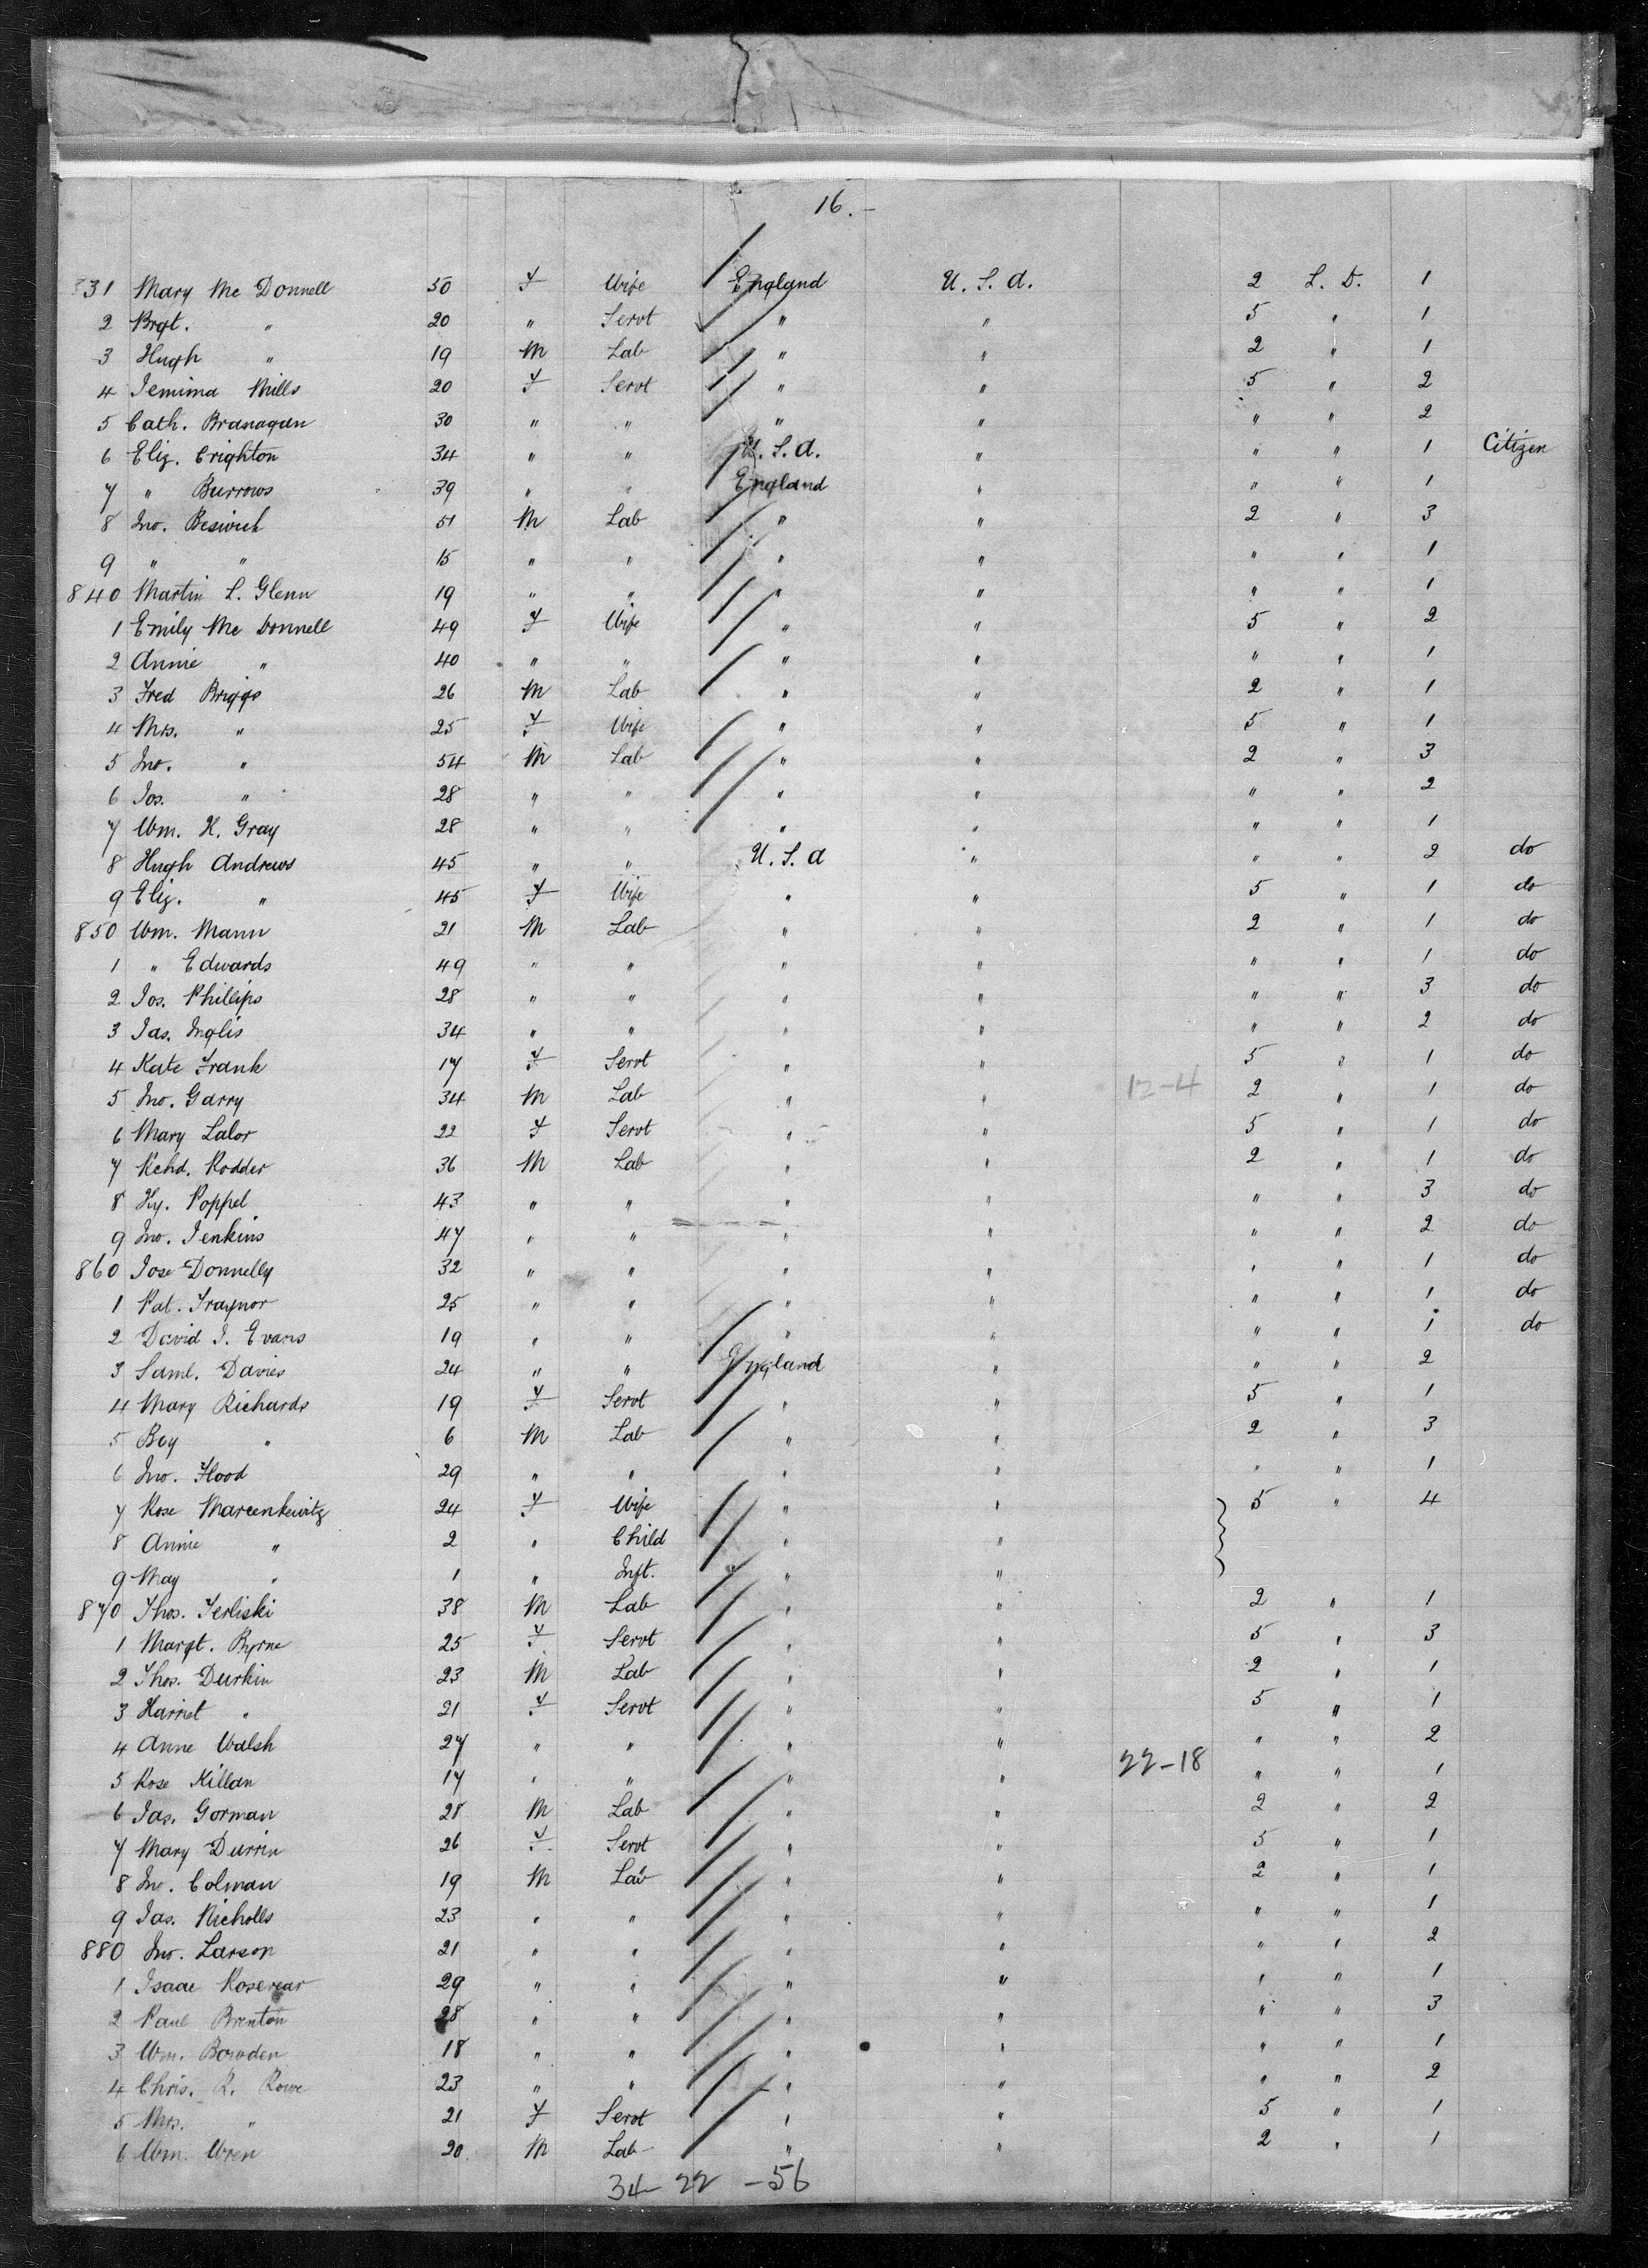 16.-
331 Mary Mc Donnell 50 F Wife England U. S. A. 2 L. D. 1
2 Brgt. " 20 " Servt " " 5 " 1
3 Hugh " 19 M Lab " " 2 " 1
4 Jemima Mills 20 F Servt " " 5 " 2
5 Cath. Branagan 30 " " " " " " 2
6 Eliz. Crighton 34 " " U. S. A. " " " 1 Citizen
7 " Burrows 39 " " England " " " 1
8 Jno. Beswick 51 M Lab " " 2 " 3
9 " " 15 " " " " " " 1
840 Martin L. Glenn 19 " " " " " " 1
1 Emily Mc Donnell 49 F Wife " " 5 " 2
2 Annie " 40 " " " " " " 1
3 Fred Briggs 26 M Lab " " 2 " 1
4 Mrs. " 25 F Wife " " 5 " 1
5 Jno. " 54 M Lab " " 2 " 3
6 Jos. " 28 " " " " " " 2
7 Wm. H. Gray 28 " " " " " " 1
8 Hugh Andrews 45 " " U. S. A " " " 2 do
9 Eliz. " 45 F Wife " " 5 " 1 do
850 Wm. Mann 21 M Lab " " 2 " 1 do
1 " Edwards 49 " " " " " " 1 do
2 Jos. Phillips 28 " " " " " " 3 do
3 Jas. Inglis 34 " " " " " " 2 do
4 Kate Frank 17 F Servt " " 5 " 1 do
5 Jno. Garry 34 M Lab " " 12-4 2 " 1 do
6 Mary Lalor 22 F Servt " " 5 " 1 do
7 Rchd. Rodder 36 M Lab " " 2 " 1 do
8 Hy. Poppel 43 " " " " " " 3 do
9 Jno. Jenkins 47 " " " " " " 2 do
860 Jose Donnelly 32 " " " " " " 1 do
1 Pat. Traynor 25 " " " " " " 1 do
2 David J. Evans 19 " " " " " " 1 do
3 Saml. Davies 24 " " England " " " 2
4 Mary Richards 19 F Servt " " 5 " 1
5 Boy " 6 M Lab " " 2 " 3
6 Jno. Flood 29 " " " " " " 1
7 Rose Marcenkewitz 24 F Wife " " 5 " 4
8 Annie " 2 " Child " "
9 May " 1 " Inft. " "
870 Thos. Terliski 38 M Lab " " 2 " 1
1 Margt. Byrne 25 F Servt " " 5 " 3
2 Thos. Durkin 23 M Lab " " 2 " 1
3 Harriet " 21 F Servt " " 5 " 1
4 Anne Walsh 27 " " " " " " 2
5 Rose Killan 17 " " " " 22-18 " " 1
6 Jas. Gorman 28 M Lab " " 2 " 2
7 Mary Durrin 26 F Servt " " 5 " 1
8 Jno. Colman 19 M Lab " " 2 " 1
9 Jas. Nicholls 23 " " " " " " 1
880 Jno. Larson 21 " " " " " " 2
1 Isaac Rosevear 29 " " " " " " 1
2 Paul Brenton 28 " " " " " " 3
3 Wm. Bowden 18 " " " " " " 1
4 Chris. R. Rowe 23 " " " " " " 2
5 Mrs. " 21 F Servt " " 5 " 1
6 Wm. Wren 20 M Lab " " 2 " 1
34-22-56